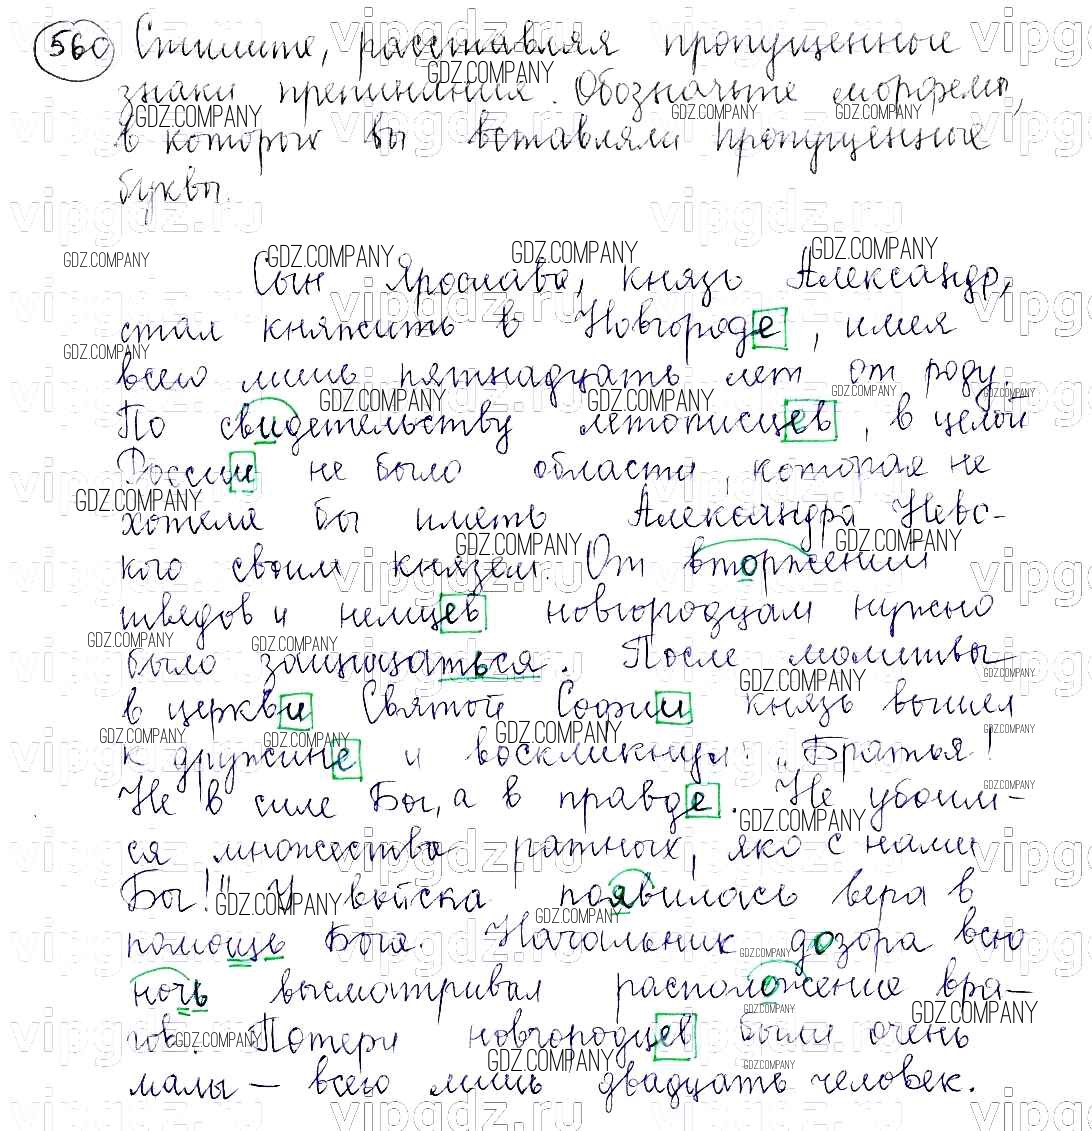 560 Спишите, расставляя пропущенные
знаки препинания. Обозначьте морфемы,
в которых вы вставляли пропущенные
буквы.
Сын Ярослава, князь Александр,
стал княжить в Новгороде, имея
всего лишь пятнадцать лет от роду.
По свидетельству летописцев, в целой
России не было области, которая не
хотела бы иметь Александра Невс-
кого своим князем. От вторжений
шведов и немцев новгородцам нужно
было защищаться. После молитвы
в церкви Святой Софии князь вышел
к дружине и воскликнул: „Братья!
Не в силе Бог, а в правде. Не убоим-
ся множества ратных, яко с нами
Бог!" У войска появилась вера в
помощь Бога. Начальник дозора всю
ночь высматривал расположение вра-
гов. Потери новгородцев были очень
малы — всего лишь двадцать человек.